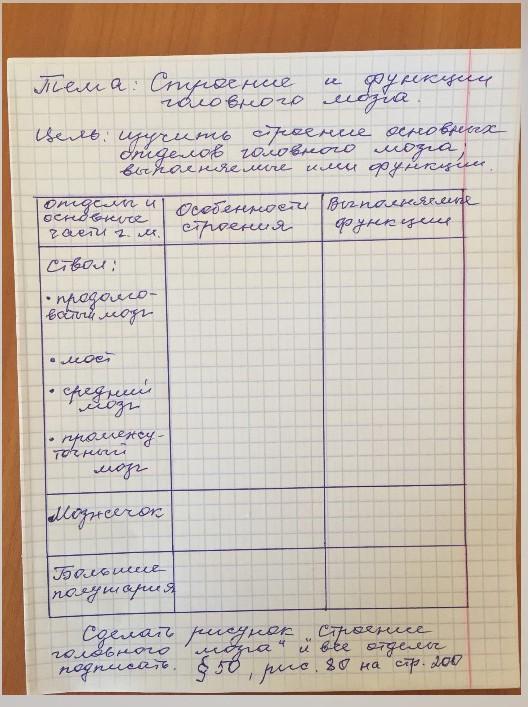 Тема: Строение и функции
головного мозга.
Цель: изучить строение основных
отделов головного мозга;
выполняемые ими функции.
отделы и
основные
части г. м.
Особенности
строения
Выполняемые
функции
Ствол:
• продолго-
ватый мозг
• мост
• средний
мозг
• промежу-
точный
мозг
Мозжечок
Большие
полушария
Сделать рисунок „Строение
головного мозга" и все отделы
подписать. § 50, рис. 80 на стр. 200